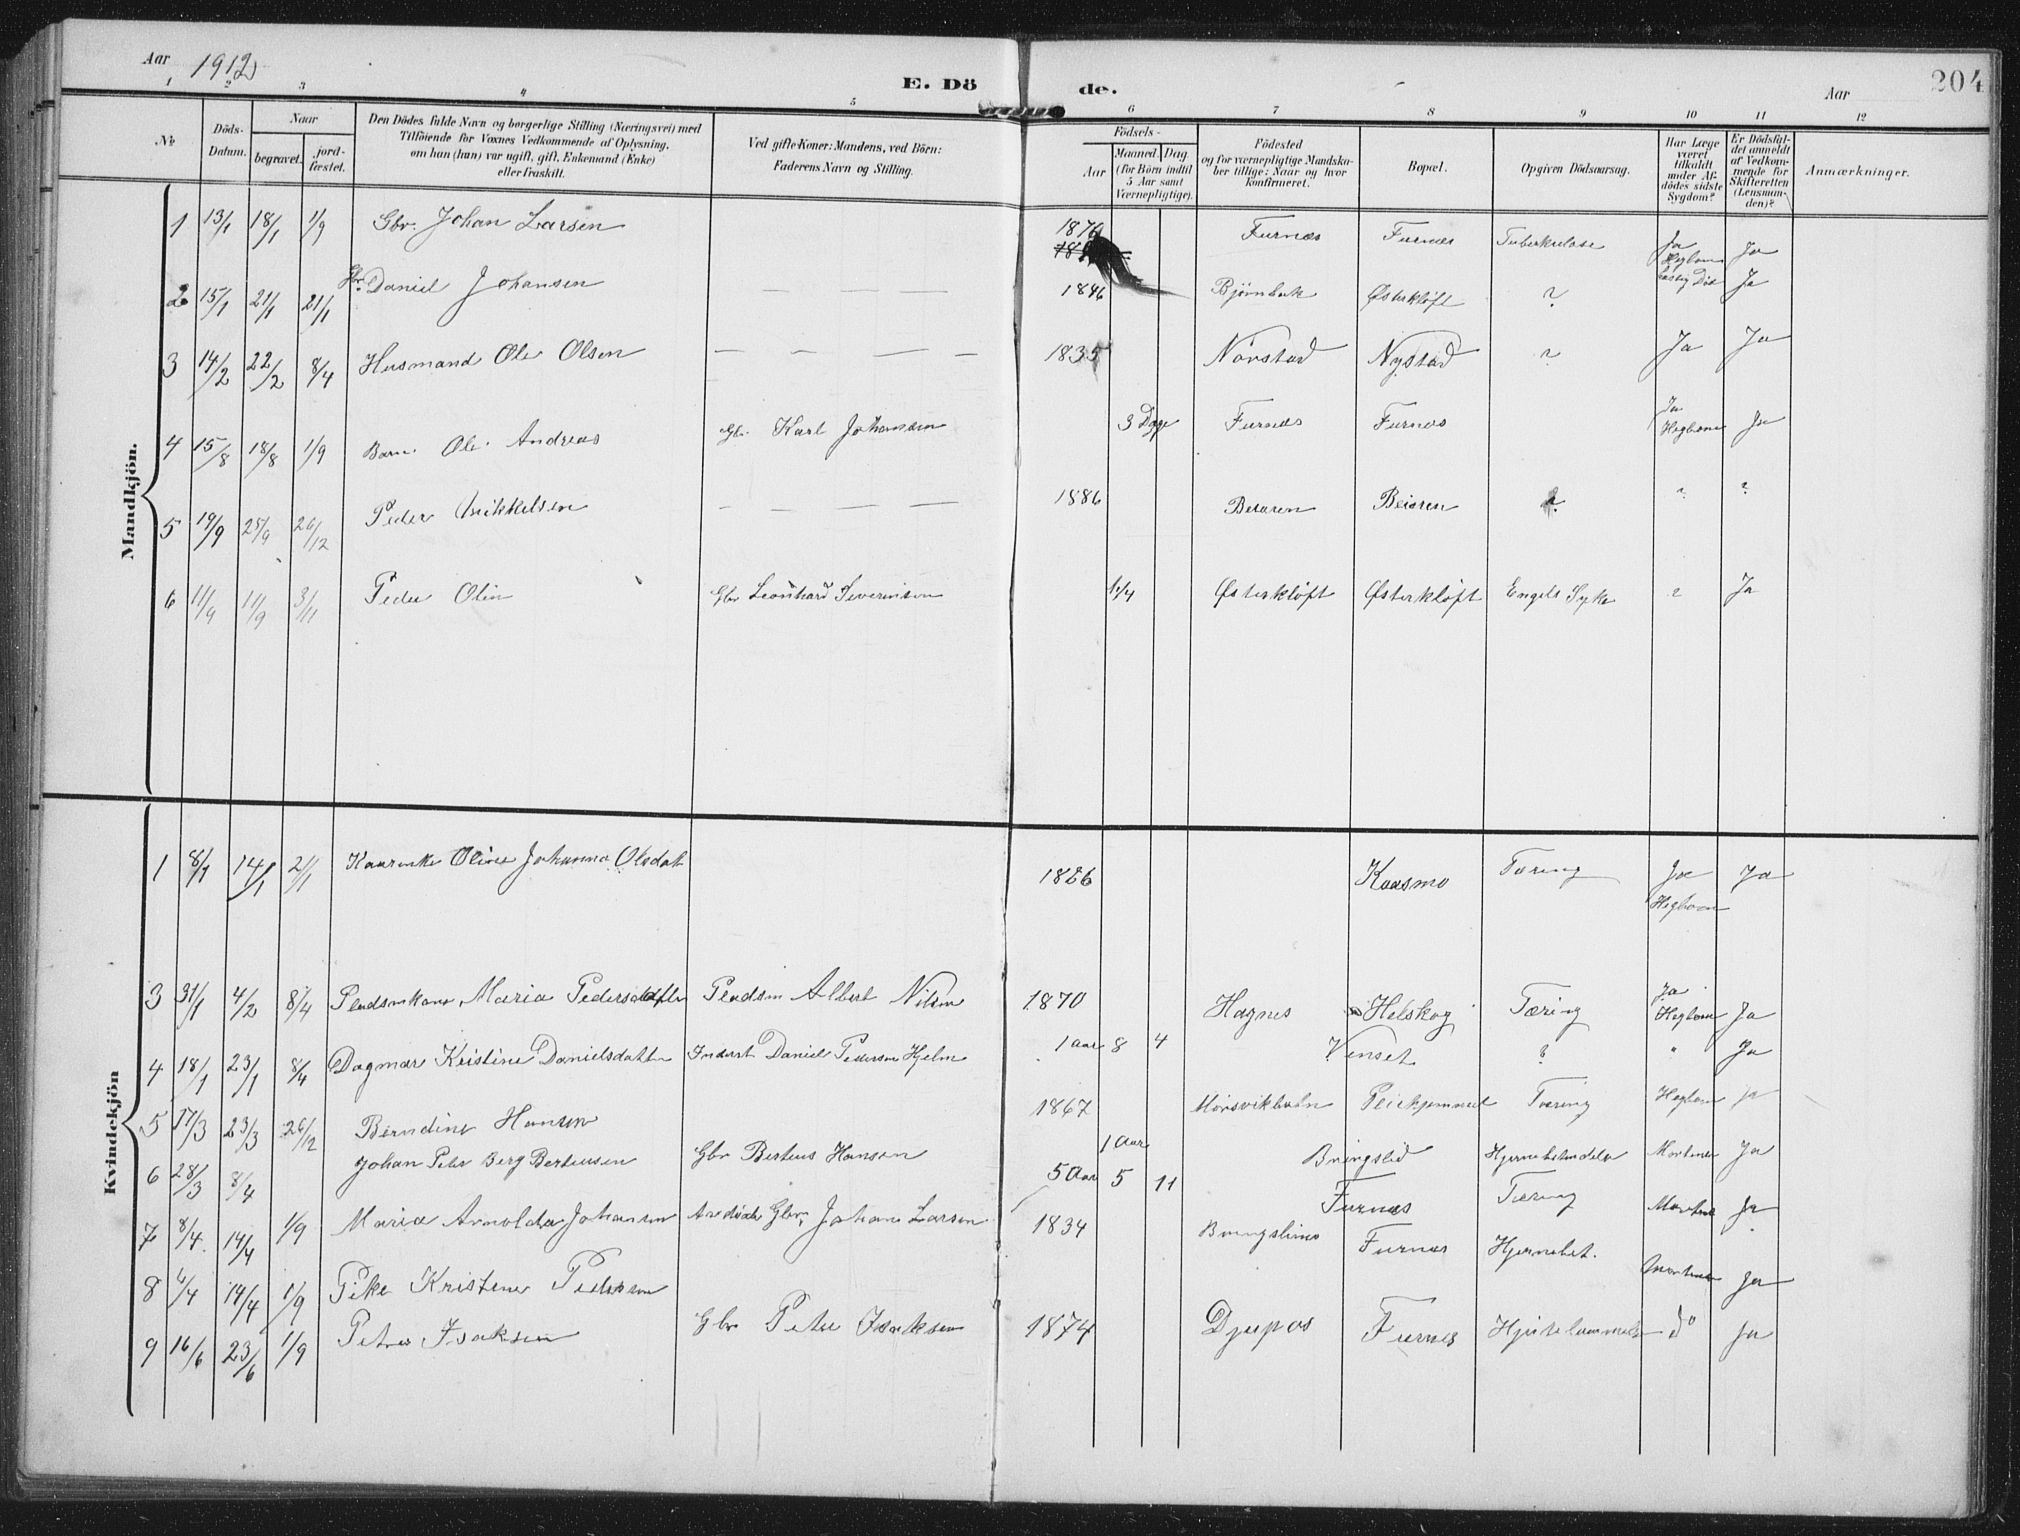 Aar 1912 E. Dö de. Aar 204
1 2 3 4 5 6 7 8 9 10 11 12
№
Döds-
Datum.
Naar
begravet.
jord-
fæstet.
Den Dödes fulde Navn og borgerlige Stilling (Næringsvei) med
Tilföiende for Voxnes Vedkommende af Oplysning,
om han (hun) var ugift, gift, Enkemand (Enke)
eller fraskilt.
Ved gifte Koner: Mandens, ved Börn:
Faderens Navn og Stilling.
Födsels-
Aar
Maaned. Dag.
(for Börn indtil
5 Aar samt
Værnepligtige).
Födested
og for værnepligtige Mandska-
ber tillige: Naar og hvor
konfirmeret.
Bopæl.
Opgiven Dödsaarsag.
Har Læge
været
tilkaldt
under Af-
dödes sidste
Sygdom?
Er Dödsfal-
det anmeldt
af Vedkom-
mende for
Skifteretten
(Lensman-
den)?
Anmærkninger.
Mandkjön.
1 13/1 18/1 1/9 Gbr. Johan Larsen — — — — 1870 Furnæs Furnæs Tuberkulose Ja Hegbom Ja
2 15/1 21/1 21/1 Gbr. Daniel Johansen — — — — 1846 Bjørnbak Østerkløft ? Ja
3 14/2 22/2 8/4 Husmand Ole Olsen — — — — 1835 Nørstad Nystad ? Ja Ja
4 15/8 18/8 1/9 Barn Ole Andreas Gbr. Karl Johansen 3 Dage Furnæs Furnæs Ja Hegbom Ja
5 19/9 25/9 26/12 Peder Mikkelsen — — — — 1886 Beiaren Beiaren ? ? ?
6 11/9 11/9 3/11 Peder Olin Gbr Leonhard Severinsen 1/4 Østerkløft Østerkløft Engels Syke ? Ja
Kvindekjön
1 8/1 14/1 2/1 Olsdat 1886 Kaasmo Tæring Ja Hegbom Ja
3 31/1 4/2 8/4 Pladsmkone Maria Pedersdatter Pladsm Albert Nilsen 1870 Hagnes Helskog Tæring Ja Hegbom Ja
4 18/1 23/1 8/4 Dagmar Kristine Danielsdatter Inderst Daniel Pedersen Hjelm 1 aar 8 4 Venset ? " Ja
5 17/3 23/3 26/12 Berndine Hansen 1867 Mørsvikbotn Pleiehjemmet Tæring Hegbom Ja
6 28/3 8/4 Johan Peter Berg Berteussen Gbr Berteus Hansen 1 Aar Bringslid Ja
7 8/4 14/4 1/9 Maria Arnolda Johansen Gbr. Johan Larsen 5 Aar 5 11 Furnæs Tæring Ja
8 6/4 14/4 1/9 Pike Kristine Pedersen 1834 Furnæs Ja
9 16/6 23/6 1/9 Petra Isaksen Gbr Peter Isaksen 1874 Djupos Furnes do Ja